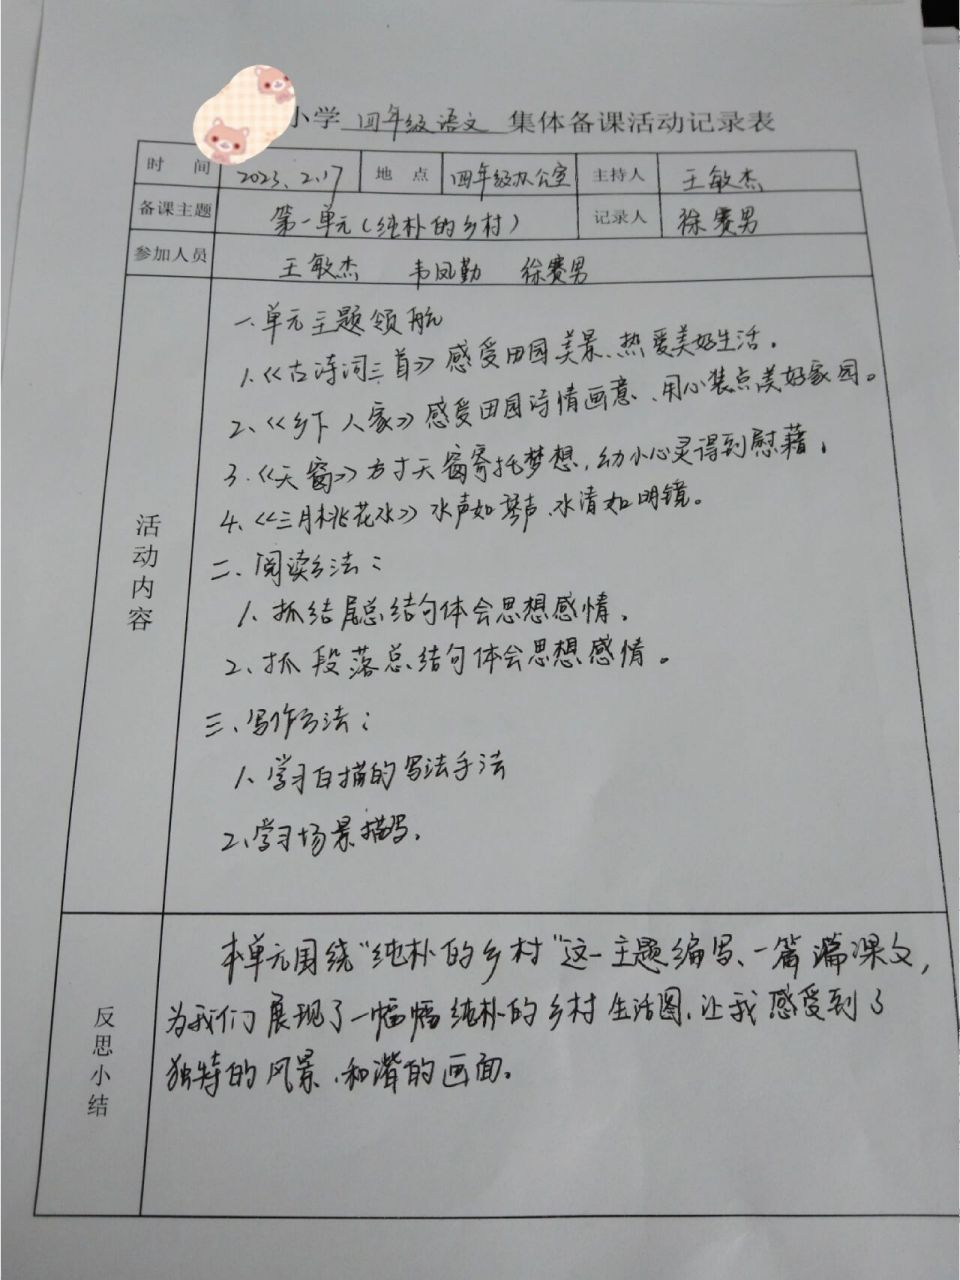 小学 四年级语文 集体备课活动记录表
时 间 2023.2.17 地 点 四年级办公室 主持人 王敏杰
备课主题 第一单元(纯朴的乡村) 记录人 徐赛男
参加人员 王敏杰 韦凤勤 徐赛男
活动内容
一.单元主题领航
1.《古诗词三首》感受田园美景、热爱美好生活。
2.《乡下人家》感受田园诗情画意、用心装点美好家园。
3.《天窗》方寸天窗寄托梦想,幼小心灵得到慰藉。
4.《三月桃花水》水声如琴声、水清如明镜。
二、阅读方法:
1.抓结尾总结句体会思想感情。
2.抓段落总结句体会思想感情。
三、写作方法:
1.学习白描的写法手法
2.学习场景描写。
反思小结
本单元围绕"纯朴的乡村"这一主题编写、一篇篇课文,
为我们展现了一幅幅纯朴的乡村生活图,让我感受到了
独特的风景、和谐的画面。